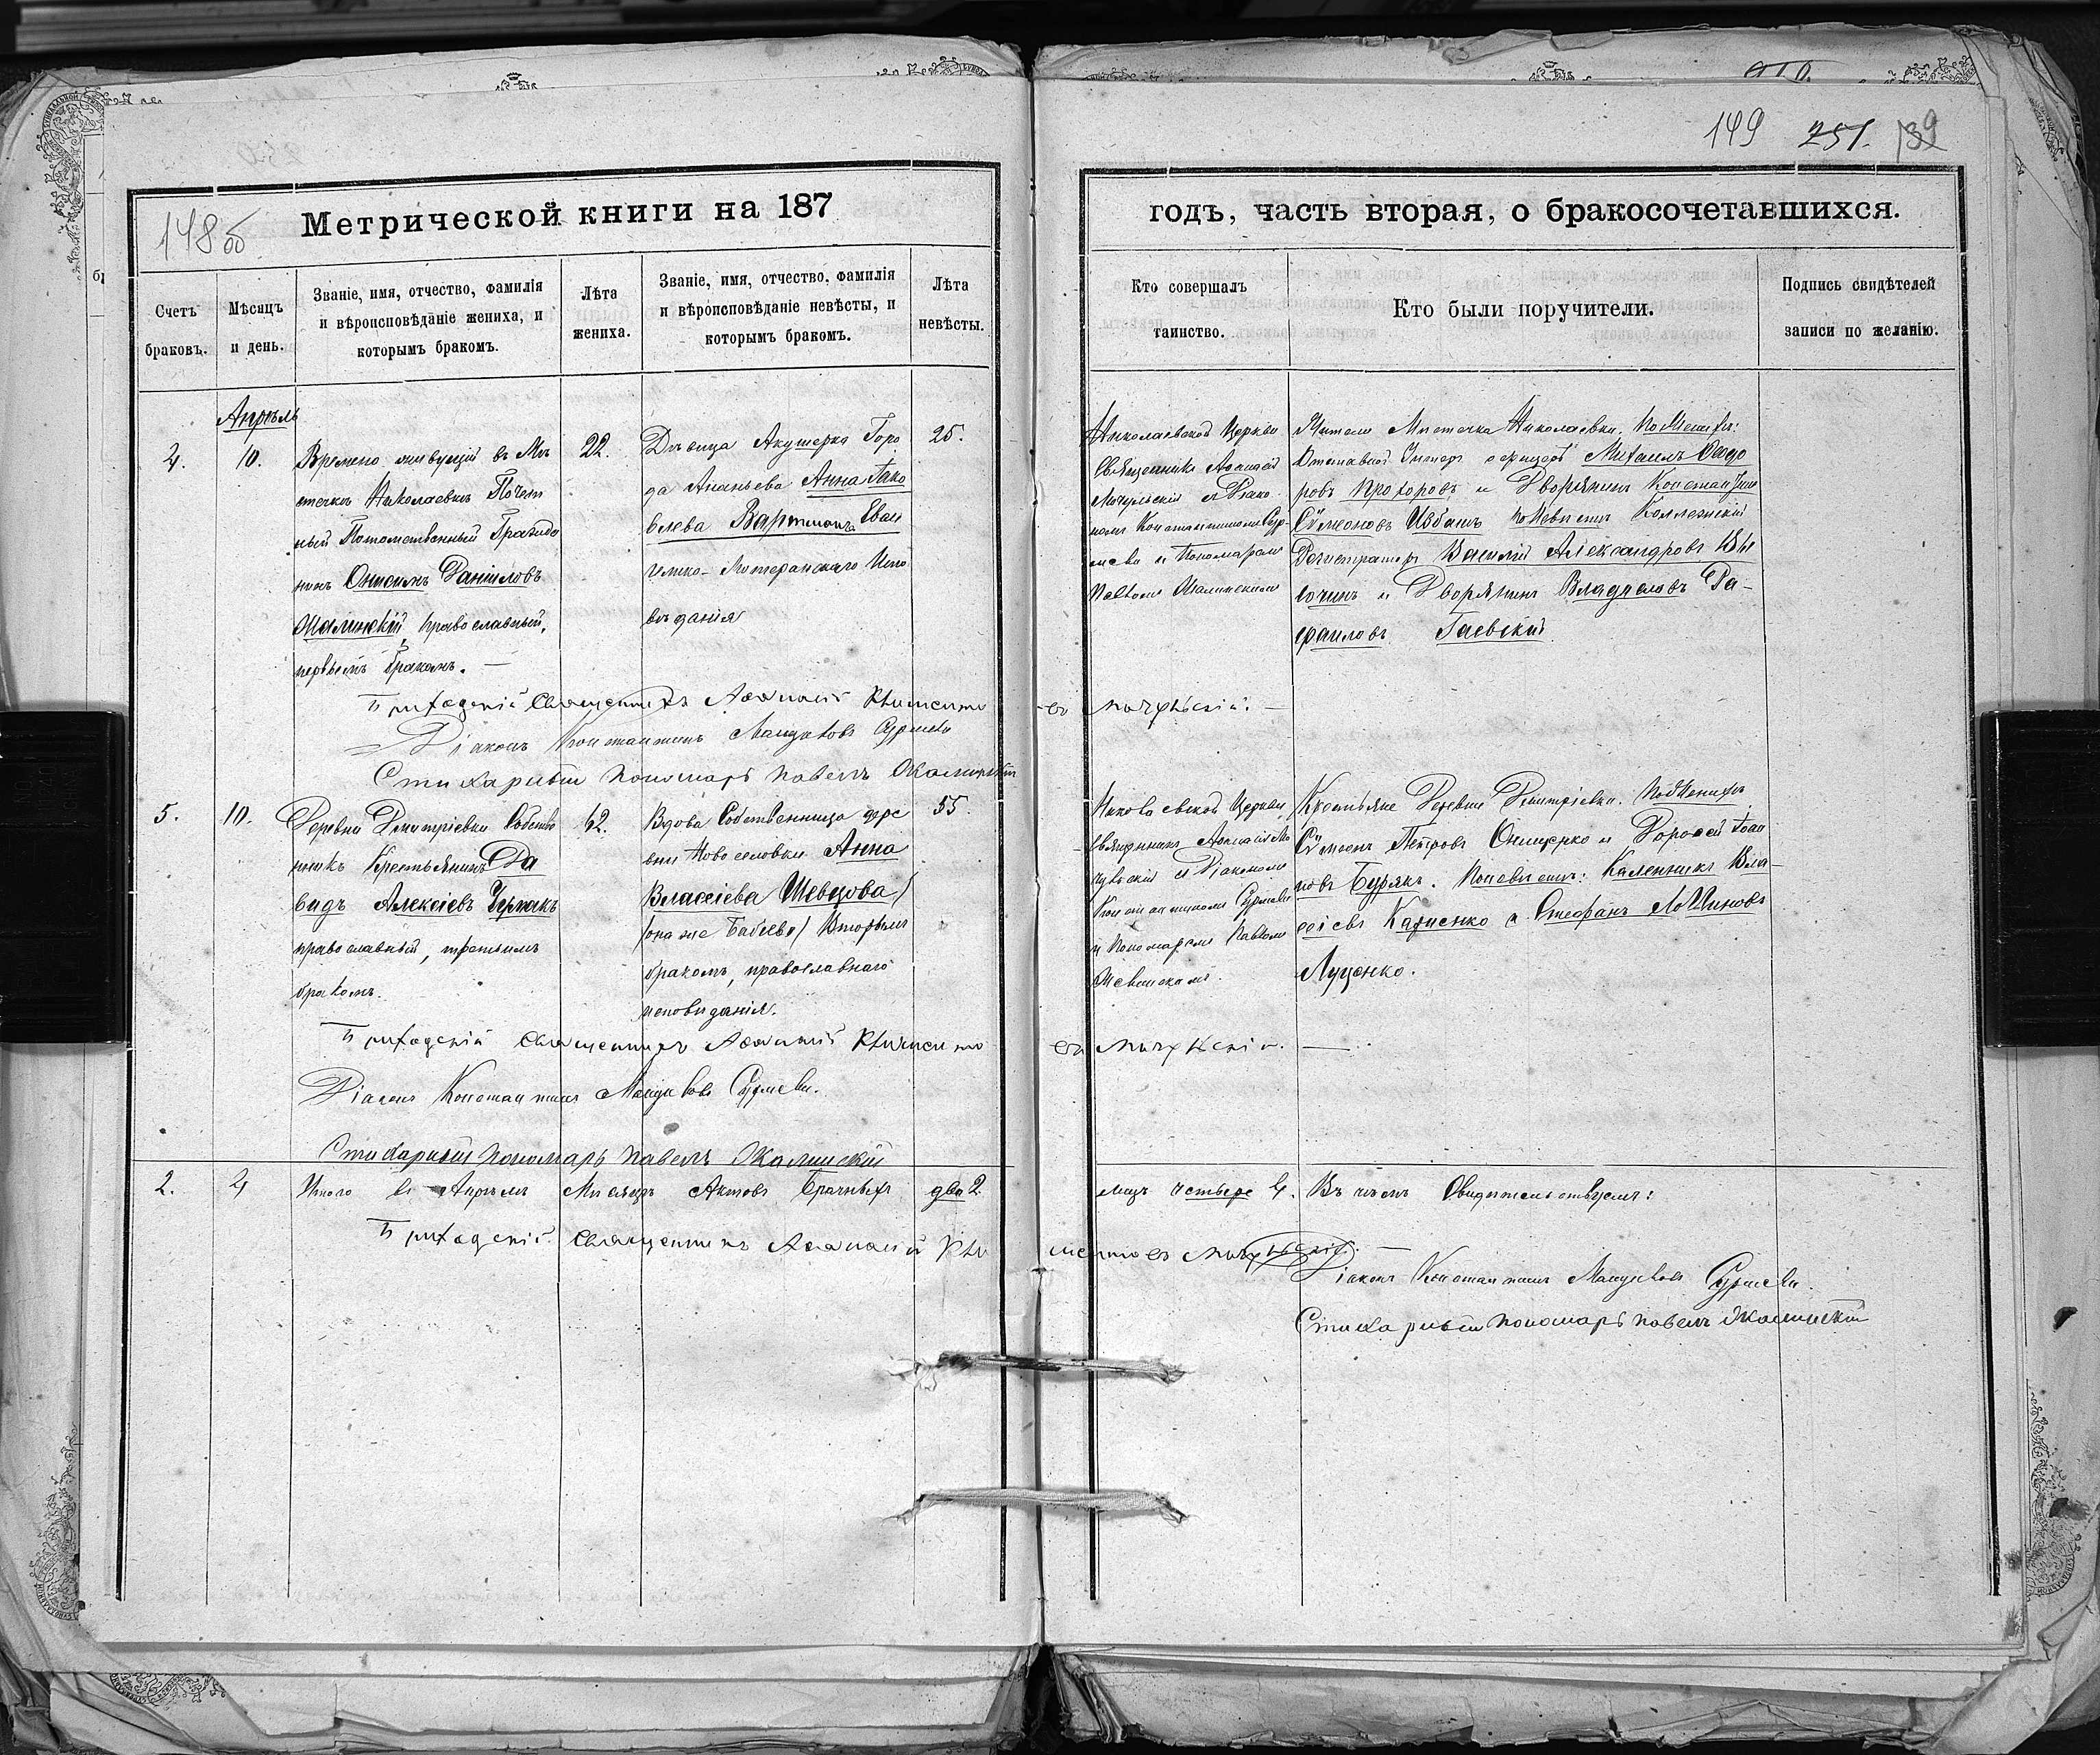 149 251. 139
148 об
Метрической книги на 187
годъ, часть вторая, о бракосочетавшихся.
Счетъ браковъ.
Мѣсяцъ и день.
Званіе, имя, отчество, фамилія и вѣроисповѣданіе жениха, и которымъ бракомъ.
Лѣта жениха.
Званіе, имя, отчество, фамилія и вѣроисповѣданіе невѣсты, и которымъ бракомъ.
Лѣта невѣсты.
Кто совершалъ таинство.
Кто были поручители.
Подпись свидѣтелей записи по желанію.
Апрѣль
4.
10.
Времено живущій въ Мѣ
стечкѣ Николаевкѣ Почет
ный Потомственный Гражда
нинъ Онисимъ Даніиловъ
православный,
первымъ бракомъ. —
22.
Дѣвица Акушерка Горо
да Ананьева Анна Іако
влева Вартманъ Еван
гелико-Лютеранскаго Испо
вѣданія
25.
Николаевской Церкви
Священникъ Афанасій
Мочульскій и Діако
номъ Константиномъ Сур-
меви и Пономаремъ
Павломъ
Жители Мѣстечка Николаевки. По Женихѣ:
Отставной Унтеръ офицеръ Михаилъ Ѳеодо
ровъ Прохоровъ и Дворянинъ Константинъ
Сѵмеоновъ По Невѣстѣ Коллежскій
Регистраторъ Василій Александровъ Вы
и Дворянинъ Владиславъ Ра-
фаиловъ Гаевскій.
Приходскій Священникъ Афанасій Климентье
въ Мочульскій. —
Діаконъ Константинъ Сурмеви
Стихарный пономарь Павелъ
5.
10.
Деревни Дмитріевки Собстве
нникъ Крестьянинъ Да
видъ Алексіевъ Чермакъ
православный, третьимъ
бракомъ.
62.
Вдова Собственница дере
вни Новоселовки Анна
Власіева Шевцова
(она же Бабіева) Вторымъ
бракомъ, православнаго
исповѣданія.
55.
Николаевской Церкви,
Священникъ Афанасій Мо
чульскій и Діакономъ
Константиномъ Сурмеви
и Пономаремъ Павломъ
Крестьяне Деревни Дмитріевки. По Женихѣ
Сѵмеонъ Петровъ Онищенко и Дорофей Іоан
новъ Бурякъ. По невѣстѣ: Каленикъ Вла-
сіевъ и Стефанъ Логиновъ
Луценко.
Приходскій Священникъ Афанасій Климентье
въ Мочульскій. —
Діаконъ Константинъ Сурмеви.
Стихарный пономарь Павелъ
2.
4
Итого въ Апрѣлѣ Мѣсяцѣ Актовъ Брачныхъ два 2.
лицъ четыре 4. Въ чемъ Свидѣтельствуемъ:
Приходскій Священникъ Афанасій Кли
ментьевъ Мочульскій. —
Діаконъ Константинъ Сурмеви.
Стихарный пономарь Павелъ